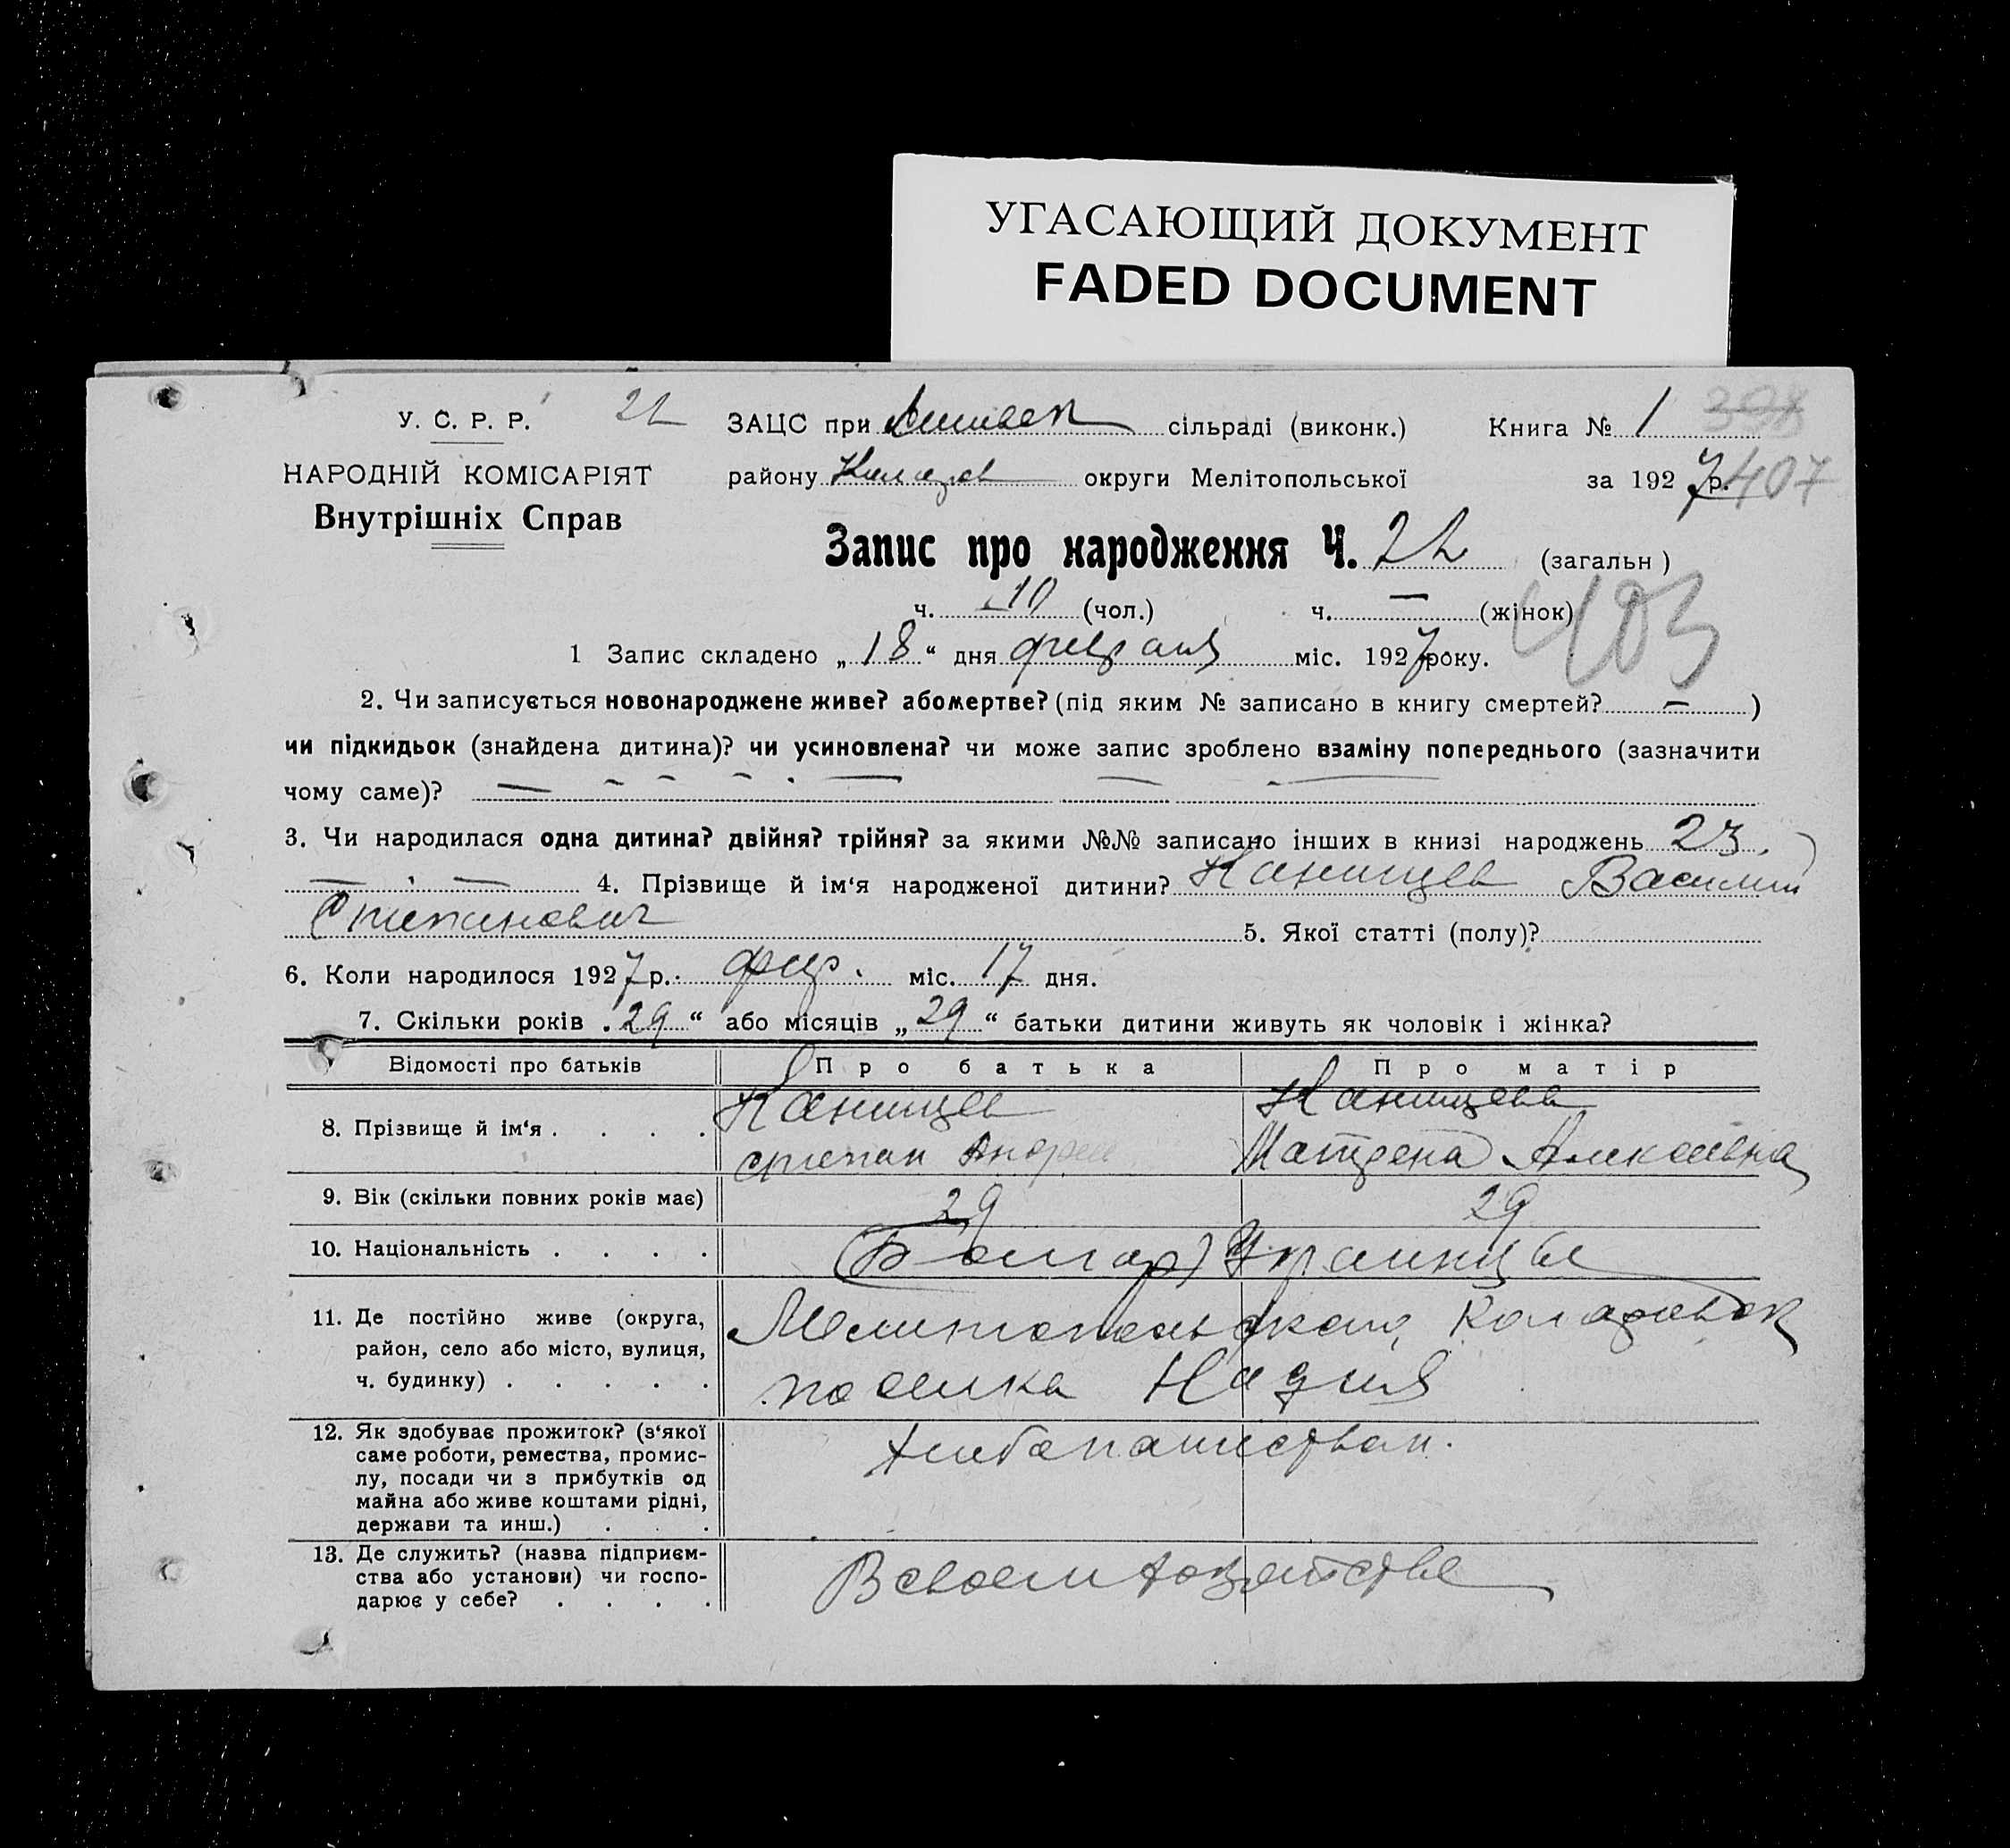 УГАСАЮЩИЙ ДОКУМЕНТ
FADED DOCUMENT
У. С. Р. Р. 22 ЗАЦС при сільраді (виконк.) Книга № 1 398
НАРОДНІЙ КОМІСАРІЯТ району округи Мелітопольської за 1927 р. 407
Внутрішніх Справ
Запис про народження Ч. 22 (загальн)
ч. 10 (чол.) ч. — (жінок) 403
1 Запис складено „18“ дня февраля міс. 1927 року.
2. Чи записується новонароджене живе? або мертве? (під яким № записано в книгу смертей? — )
чи підкидьок (знайдена дитина)? чи усиновлена? чи може запис зроблено взаміну попереднього (зазначити
чому саме)? — — — — — — —
3. Чи народилася одна дитина? двійня? трійня? за якими №№ записано інших в книзі народжень 23.
— — 4. Прізвище й ім‘я народженої дитини? Канищев Василий
Степанович 5. Якої статті (полу)?
6. Коли народилося 1927 р. фев. міс. 17 дня.
7. Скільки років „29“ або місяців „29“ батьки дитини живуть як чоловік і жінка?
Відомості про батьків Про батька Про матір
8. Прізвище й ім‘я . . . . Канищев Канищева
Степан Андрей Матрена Алексеевна
9. Вік (скільки повних років має) 29 29
10. Національність . . . . (Болгар) Украинцы
11. Де постійно живе (округа, Мелитопольской Коларовск
район, село або місто, вулиця,
ч. будинку) . . . . . поселка Надия
12. Як здобуває прожиток? (з‘якої Хлебопашеством.
саме роботи, ремества, промис-
лу, посади чи з прибутків од
майна або живе коштами рідні,
держави та инш.) . . .
13. Де служить? (назва підприєм- В своем хозяйстве
ства або установи) чи госпо-
дарює у себе? . . . .